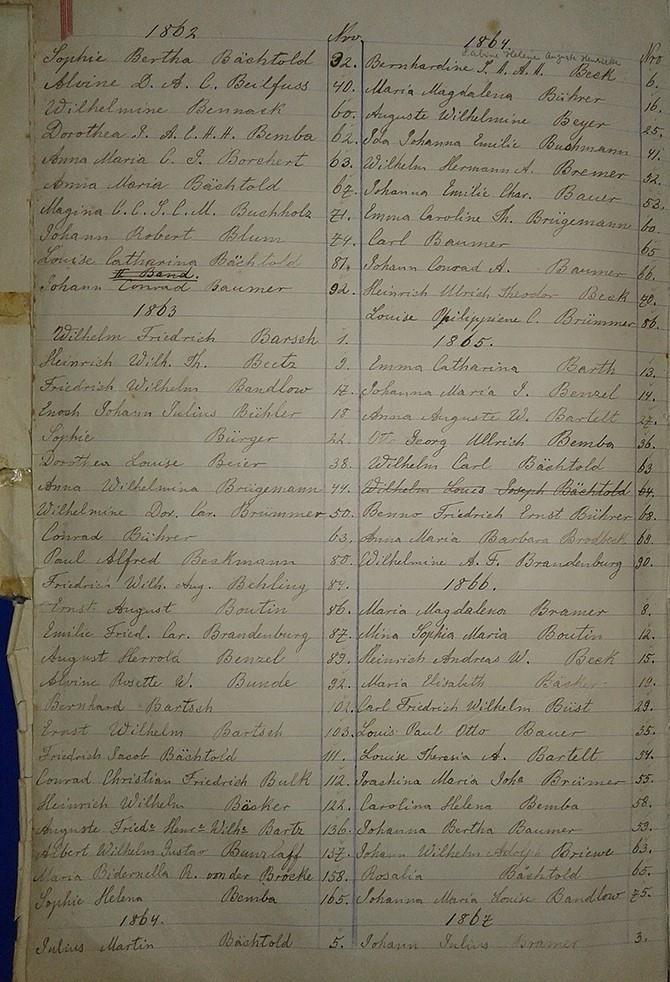 1862 Nro
Sophie Bertha Bächtold 32.
Alvine D. A. C. Beilfuss 40.
Wilhelmine Bennack 60.
Dorothea J. A. E. H. H. Bemba 62.
Anna Maria C. J. Borchert 63.
Anna Maria Bächtold 67.
Magina C. C. J. C. M. Buchholz 71.
Johann Robert Blum 74.
Louise Catharina Bächtold 81.
II Band.
Johann Conrad Baumer 92.
1863
Wilhelm Friedrich Barsch 1.
Heinrich Wilh. Th. Beetz 9.
Friedrich Wilhelm Bandlow 17.
Enosh Johann Julius Bühler 18
Sophie Bürger 22.
Dorothea Louise Beier 38.
Anna Wilhelmina Brügemann 44.
Wilhelmine Dor. Car. Brümmer 50.
Conrad Bührer 63.
Paul Alfred Beskmann 80.
Friedrich Wilh. Aug. Behling 84.
Ernst August Boutin 86.
Emilie Fried. Car. Brandenburg 87.
August Herrold Benzel 89.
Alvine Rosette W. Bunde 92.
Bernhard Bartsch 102.
Ernst Wilhelm Bartsch 103.
Friedrich Jacob Bächtold 111.
Conrad Christian Friedrich Bulk 112.
Heinrich Wilhelm Bäsker 122.
Auguste Fried. Henr. Wilh. Bartz 136.
Albert Wilhelm Gustav Bunzlaff 157.
Maria Bidernella R. von der Brocke 158.
Sophie Helena Bemba 165.
1864.
Julius Martin Bächtold 5.
1864 Nro
Sabine Helene Auguste Henriette
Bernhardine S. H. A. H. Beck 6.
Maria Magdalena Bührer 16.
Auguste Wilhelmine Beyer 25.
Ida Johanna Emilie Buchmann 41.
Wilhelm Hermann A. Bremer 52.
Johanna Emilie Char. Bauer 53.
Emma Caroline Th. Brügemann 60.
Carl Baumer 65
Johann Conrad A. Baumer 66.
Heinrich Ulrich Theodor Beck 70.
Louise Philippiene C. Brümmer 86.
1865.
Emma Catharina Barth 13.
Johanna Maria J. Benzel 14.
Anna Auguste W. Bartelt 27.
Georg Ullrich Bemba 36.
Wilhelm Carl Bächtold 63
Wilhelm Louis Joseph Bächtold 64.
Benno Friedrich Ernst Bührer 68.
Anna Maria Barbara Brodbeck 69.
Wilhelmine A. F. Brandenburg 90.
1866.
Maria Magdalena Bramer 8.
Mina Sophia Maria Boutin 12.
Heinrich Andreas W. Beck 15.
Maria Elisabeth Bäsker 19.
Carl Friedrich Wilhelm Büst 29.
Louis Paul Otto Bauer 35.
Louise Theresia A. Bartelt 54.
Joachina Maria Joha Brümer 55.
Carolina Helena Bemba 58.
Johanna Bertha Baumer 59.
Johann Wilhelm Adolph Briewe 63.
Rosalia Bächtold 65.
Johanna Maria Louise Bandlow 75.
1867
Johann Julius Bramer 3.